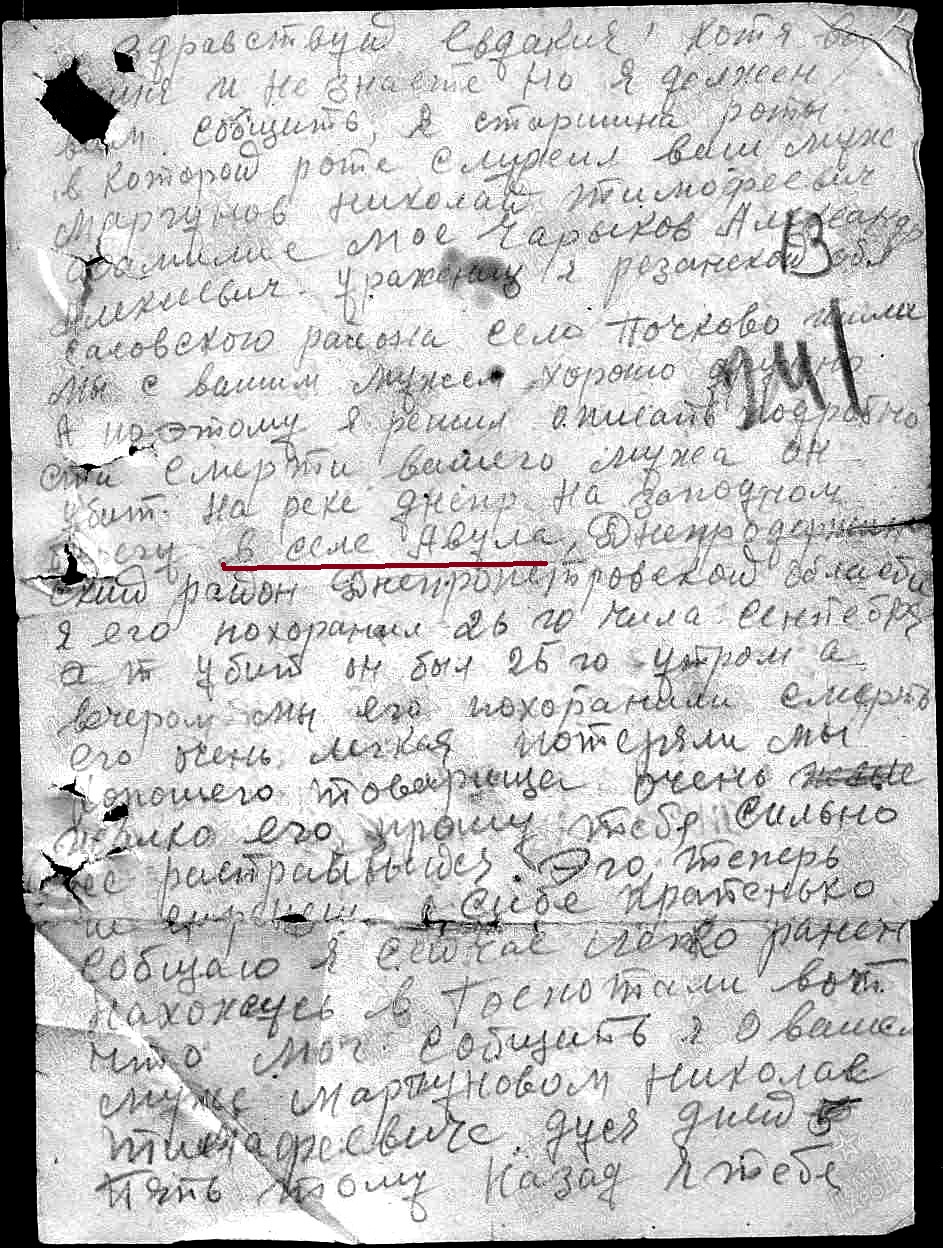 Здравствуй Евдакия! хотя вы
меня и не знаете но я должен
вам сообщить, я старшина роты
в которой роте служил ваш муж
Мартунов Николай Тимофеевич
фамилие мое Чарыков Александр
Алексеевич. уражениц я резанской обл
13
саловского района село Почково жили
мы с вашим мужем хорошо дружно
А поэтому я решил описать подробно
241
сти смерти вашего мужа он
убит на реке днепр на заподном
берегу в селе Авула, Днепродержин
ский район Днепропетровской области
я его похоранил 26 го числа сентебря
а т убит он был 25 го утром а
вечером мы его похоранили смерть
его очень легкая потеряли мы
хорошего товарища очень
жалко его прошу тебя сильно
не растраивыйся. Эго теперь
не вернеш. о себе кратенько
сообщаю я сейчас легко ранен
нахожусь в Госпотали вот
что мог сообщить я о вашем
муже Мартуновом Николае
Тимафеевиче. дуся дней 5
пять тому назад я тебе